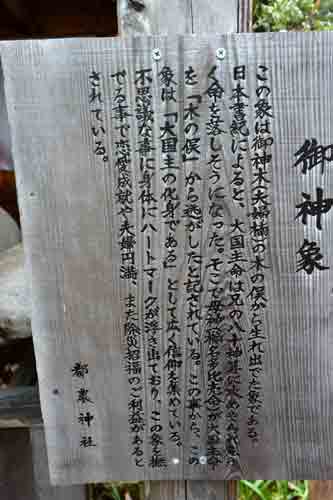 御神象
この象は御神木(夫婦楠)の木の俣から生れ出でた象である。
日本書紀によると、大国主命は兄の八十神
く命を落しそうになった。そこで 大国主命
を「木の俣」から逃がしたと記されている。この事から、この
象は「大国主の化身である」として広く信仰を集めている。
不思議な事に身体にハートマークが浮き出ており、この象を撫
でる事で恋愛成就や夫婦円満、また除災招福のご利益があると
されている。
都農神社